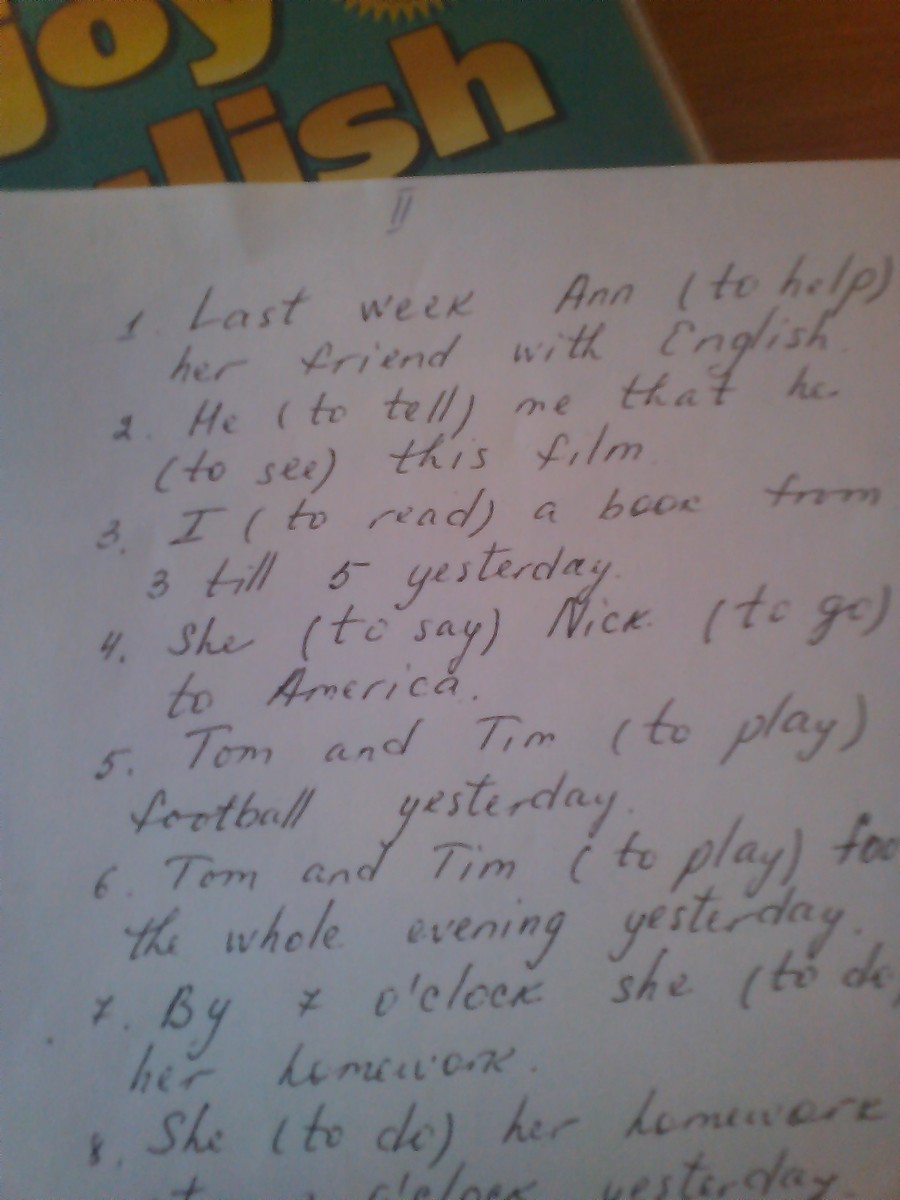 joy
lish
II
1. Last week Ann (to help)
her friend with English.
2. He (to tell) me that he
(to see) this film
3. I (to read) a book from
3 till 5 yesterday.
4. She (to say) Nick (to go)
to America.
5. Tom and Tim (to play)
football yesterday.
6. Tom and Tim (to play) foo
the whole evening yesterday.
7. By 7 o'clock she (to do)
her homework.
8. She (to do) her homework
o'clock yesterday